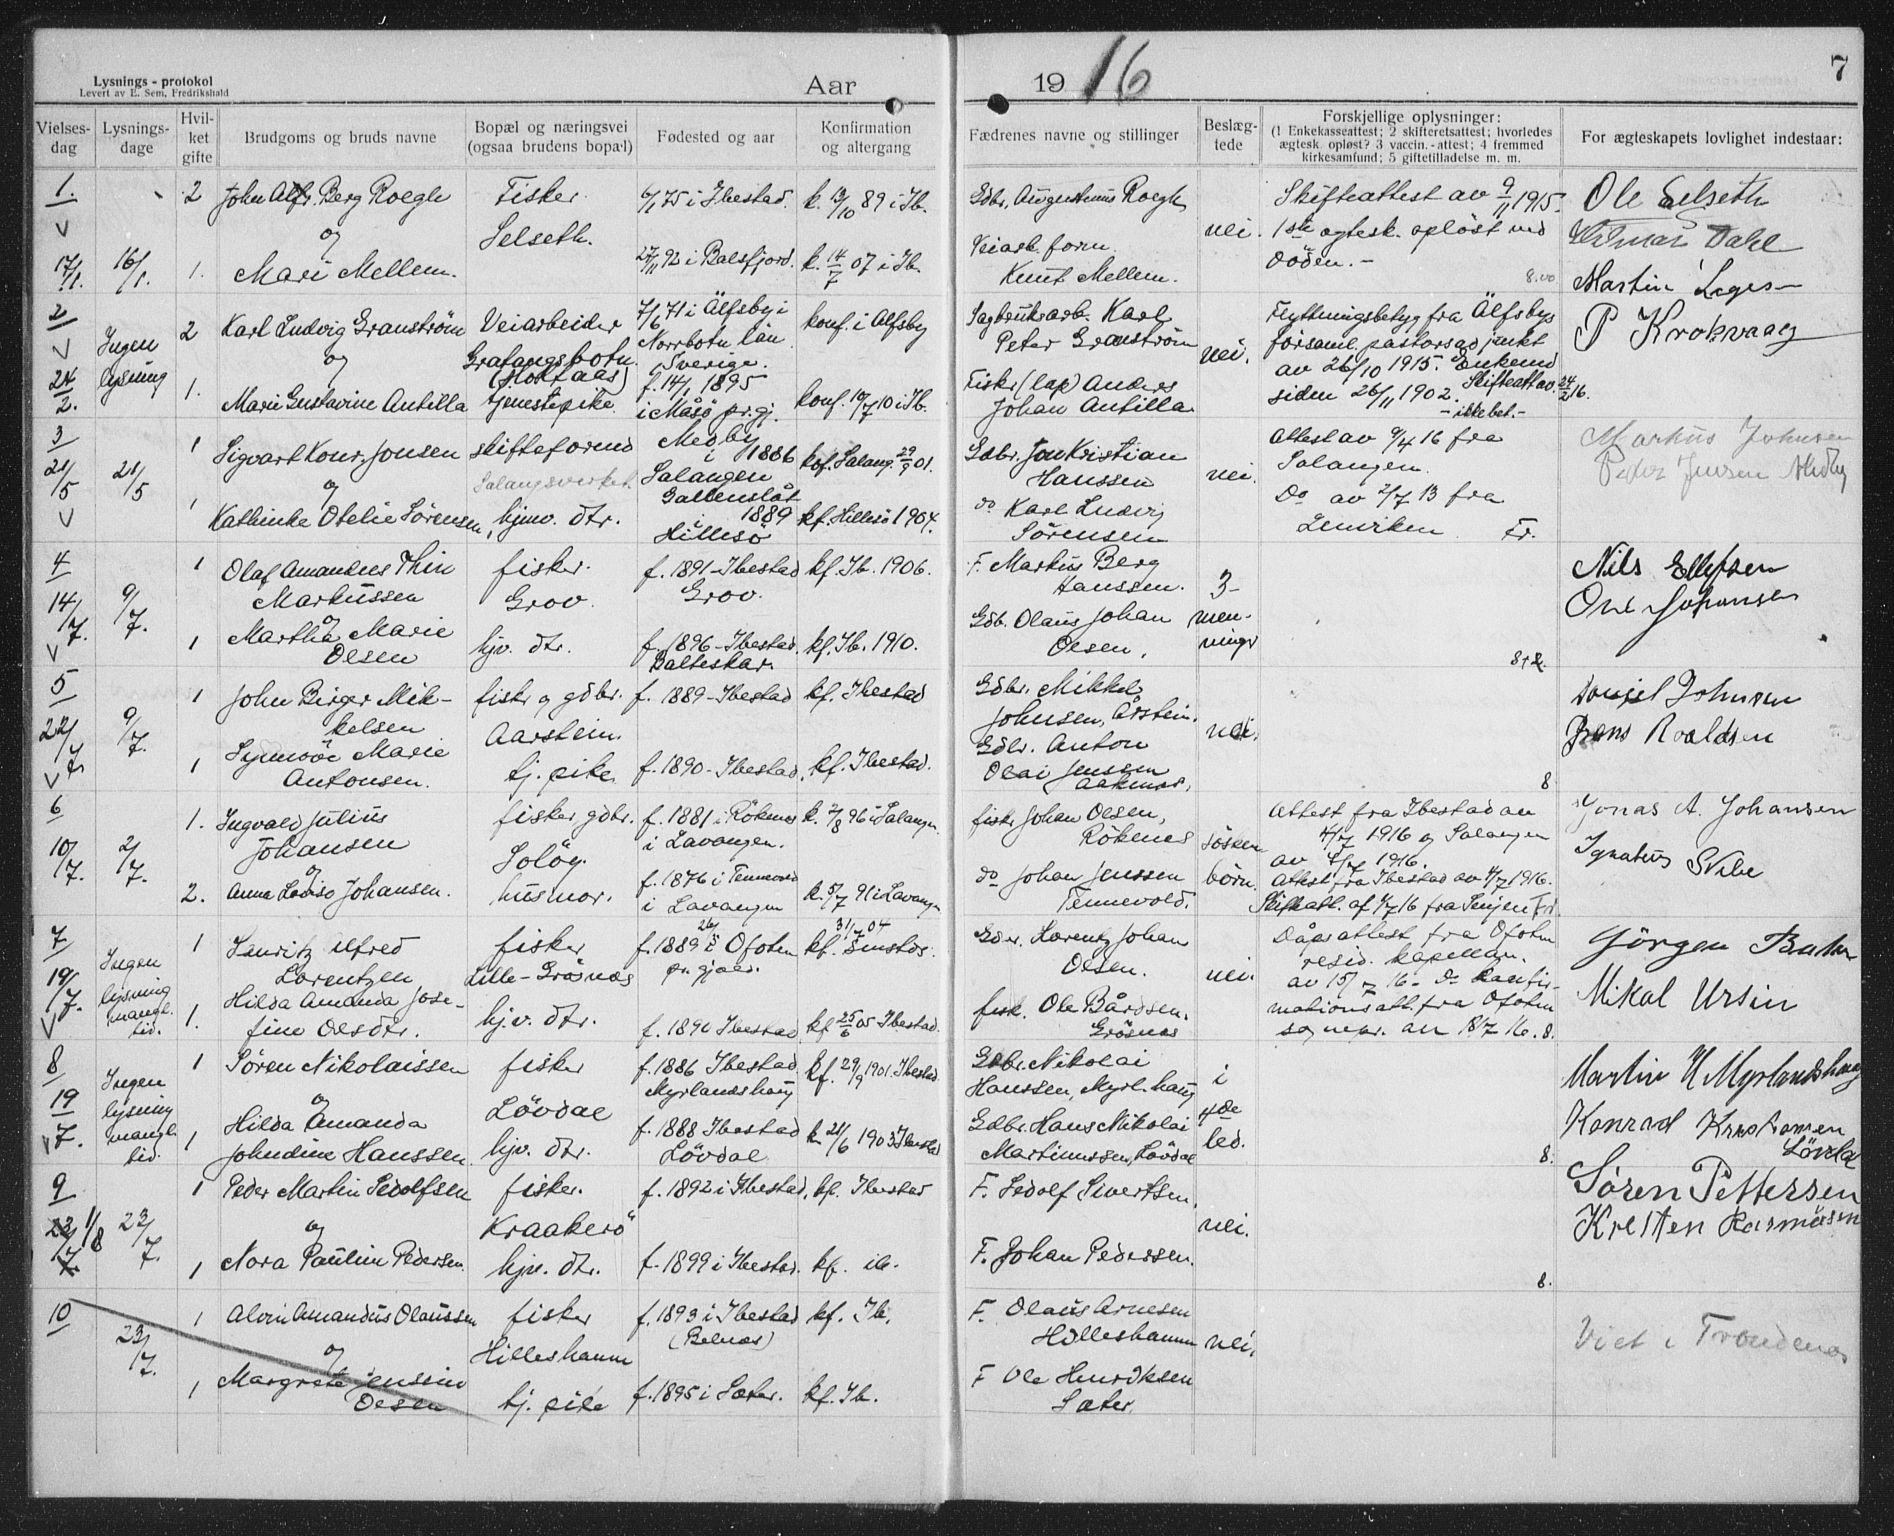 Lysnings - protokol
Levert av E. Sem, Fredrikshald
Aar
19 16
7
Vielses-dag
Lysnings-dage
Hvil-ket gifte
Brudgoms og bruds navne
Bopæl og næringsvei (ogsaa brudens bopæl)
Fødested og aar
Konfirmation og altergang
Fædrenes navne og stillinger
Beslæg-tede
Forskjellige oplysninger:
(1 Enkekasseattest; 2 skifteretsattest; hvorledes
ægtesk. opløst? 3 vaccin.-attest; 4 fremmed
kirkesamfund; 5 giftetilladelse m. m.
For ægteskapets lovlighet indestaar:
1.
17/1.
16/1.
2 John Alfr. Berg Roegh
og
1. Mari Mellem.
Fisker
Selseth.
6/1 75 i Ibestad.
27/11 92 i Balsfjord.
k. 13/10 89 i Ib.
k. 14/7 07 i Ib.
Gdbr. Augustinus Roegh
Veiarb. form.
Knut Mellem.
nei.
Skifteattest av 9/11 1915.
1ste egtesk. opløst ved
døden. -
8.00
Ole Selseth
Hilmar Dahl
Martin
2
24/2.
Ingen
lysning
2 Karl Ludvig Granström
og
1. Marie Gustavine Antilla
Veiarbeider
Gratangsbotn.
tjenestepike.
7/6 71 i Älfsby i
Norrbotn län
Sverige.
f. 14/1 1895
i Måsö pr.gj.
konf. i Alfsby
konf. 10/7 10 i Ib.
Sagbruksarb. Karl
Peter Granström
Fisker (lap) Anders
Johan Antilla
nei.
Flyttningsbetyg fra Älfsbys
församl. pastorsadjunkt
av 26/10 1915. Enkemd
siden 26/11 1902. Skifteatt av 24/2 16.
- ikke bet. -
P Krokvaag
3
21/5
21/5
1 Sigvart Konr. Jonsen
og
1 Kathinka Otelie Sörensen,
skifteformd
Salangsverket.
hjmv. dtr.
Medby
i 1886
Salangen
1889
Hillesö
kof. Salang. 29/9 01.
kf. Hillesö 1904.
Gdbr. Jon Kristian
Hanssen
do Karl Ludvig
Sörensen
nei.
Attest av 9/4 16 fra
Salangen.
Do av 2/7 13 fra
Lenviken
Fr.
Markus Johnsen
Peder Jensen Medby
4
14/7.
9/7.
1 Olaf Amandus Thin
Markussen
og
1 Martha Marie
Olsen
fisker.
Grov.
hjv. dtr.
f. 1891 - Ibestad
Grov.
f. 1896 - Ibestad.
Balteskar.
kf. Ib. 1906.
kf. Ib. 1910.
F. Markus Berg
Hanssen.
Gdb. Olaus Johan
Olsen.
3-
men-
ninger
8+2.
Nils Ellefsen
Ole Johansen
5
22/7
9/7.
1 John Birger Mik-
kelsen
1 Synnöve Marie
Antonsen.
fisker og gdbr.
Aarstein.
tj. pike
f. 1889 - Ibestad
f. 1890 - Ibestad.
kf. Ibestad
kf. Ibestad.
Gdbr. Mikkel
Johnsen, Årstein.
Gdbr. Anton
Olai Jenssen
nei.
8
Daniel Johnsen
Jens Roaldsen
6
10/7.
2/7.
1. Ingvald Julius
Johansen
og
2. Anna Lovise Johansen.
fisker, gdbr.
Solög.
husmor.
f. 1881 i Rökenes
i Lavangen.
f. 1876 i Tennevold
i Lavangen
k. 2/8 96 i Salangen.
k. 5/7 91 i Lavangen
fisk. Johan Olsen,
Rökenes
do Johan Jenssen
Tennevold.
sösken
börn.
Attest fra Ibestad av
4/7 1916 og Salangen
av 4/7 1916.
Attest fra Ibestad av 4/7 1916.
Skifteatt. af 4/7 16 fra Senjen Frd.
Jonas A. Johansen
Ignatius Nibe
7
19/7.
Ingen
lysning
mangl.
tid.
1 Lauritz Alfred
Lorentzen
1. Hilda Amanda Jose-
fine Olesdtr.
fisker
Lille-Gråsnas
hjv. dtr.
f. 26/ 1889 i Ofoten
pr. gjæld.
f. 1890 Ibestad
31/7 04
kf.
kf 25/6 05 Ibestad.
Gdbr. Lorentz Johan
Olsen.
fisk. Ole Bårdsen,
Gråsnas
nei.
Dåpsattest fra Ofoten
resid. kapellan.
av 15/7 16. Do konfir-
mationsatt. fra Ofoten
sognepr. av 18/7 16. 8.
Jörgen
Mikal Ursin
8
19/7.
Ingen
lysning
mangl.
tid.
1 Søren Nikolaissen
og
1 Hilda Amanda
Johndine Hanssen
fisker
Lövdal
hjv. dtr.
f. 1886 Ibestad
Myrlandshaug
f. 1888 Ibestad
Lövdal
kf. 29/9 1901. Ibestad
k. 21/6 1903 Ibestad
Gdbr. Nikolai
Hanssen, Myrl.haug
Gdbr. Hans Nikolai
Martinussen, Lövdal
i
4de
led.
8.
Martin H Myrlandshaug
Konrad Kristiansen
Lövdal
9
23/7. 1/8
23/7.
1 Peder Martin Sedolfsen
og
1 Nora Pauline Pedersen
fisker.
Kraakerö
hjv. dtr.
f. 1892 i Ibestad.
f. 1899 i Ibestad.
kf. Ibestad
kf. ib.
F. Sedolf Sivertsen.
F. Johan Pedersen.
nei.
8.
Sören Pettersen
Kresten Rasmusen
10
23/7.
1 Alvin Amandus Olaussen
og
1 Margrete Jensine
Olsen
fisker
Hilleshamn
tj. pike
f. 1893 i Ibestad
f. 1895 i Sæter.
kf. Ib.
kf. Ib.
F. Olaus Arnesen
Hilleshamn
F Ole Henriksen
Sæter.
nei.
Viet i Trondenes